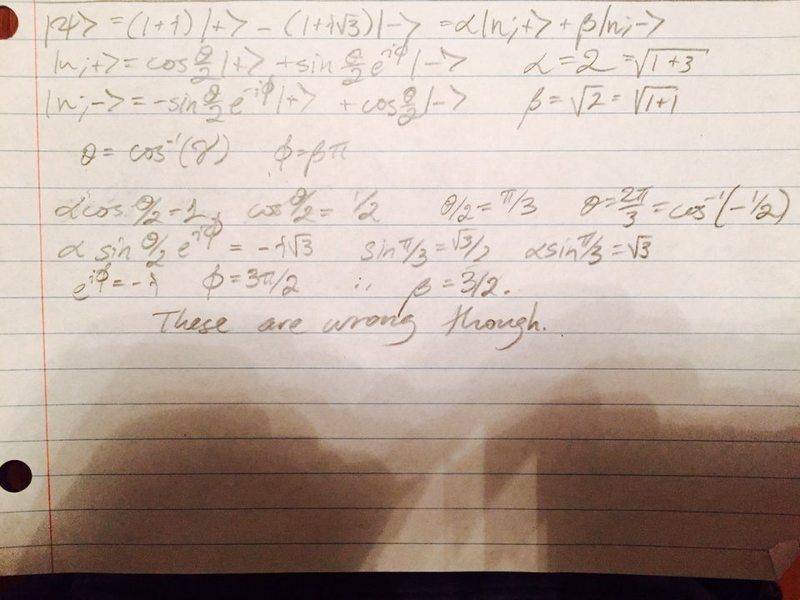 |ψ> = (1+i)|+> - (1+i√3)|-> = α|n;+> + β|n;->
|n;+> = cos θ/2 |+> + sin θ/2 e^{iφ} |-> α = 2 = √(1+3)
|n;-> = -sin θ/2 e^{-iφ} |+> + cos θ/2 |-> β = √2 = √(1+1)
θ = cos⁻¹(γ) φ = βπ
α cos θ/2 = 1, cos θ/2 = 1/2 θ/2 = π/3 θ = 2π/3 = cos⁻¹(-1/2)
α sin θ/2 e^{iφ} = -i√3 sin π/3 = √3/2 α sin π/3 = √3
e^{iφ} = -i φ = 3π/2 ∴ β = 3/2.
These are wrong though.